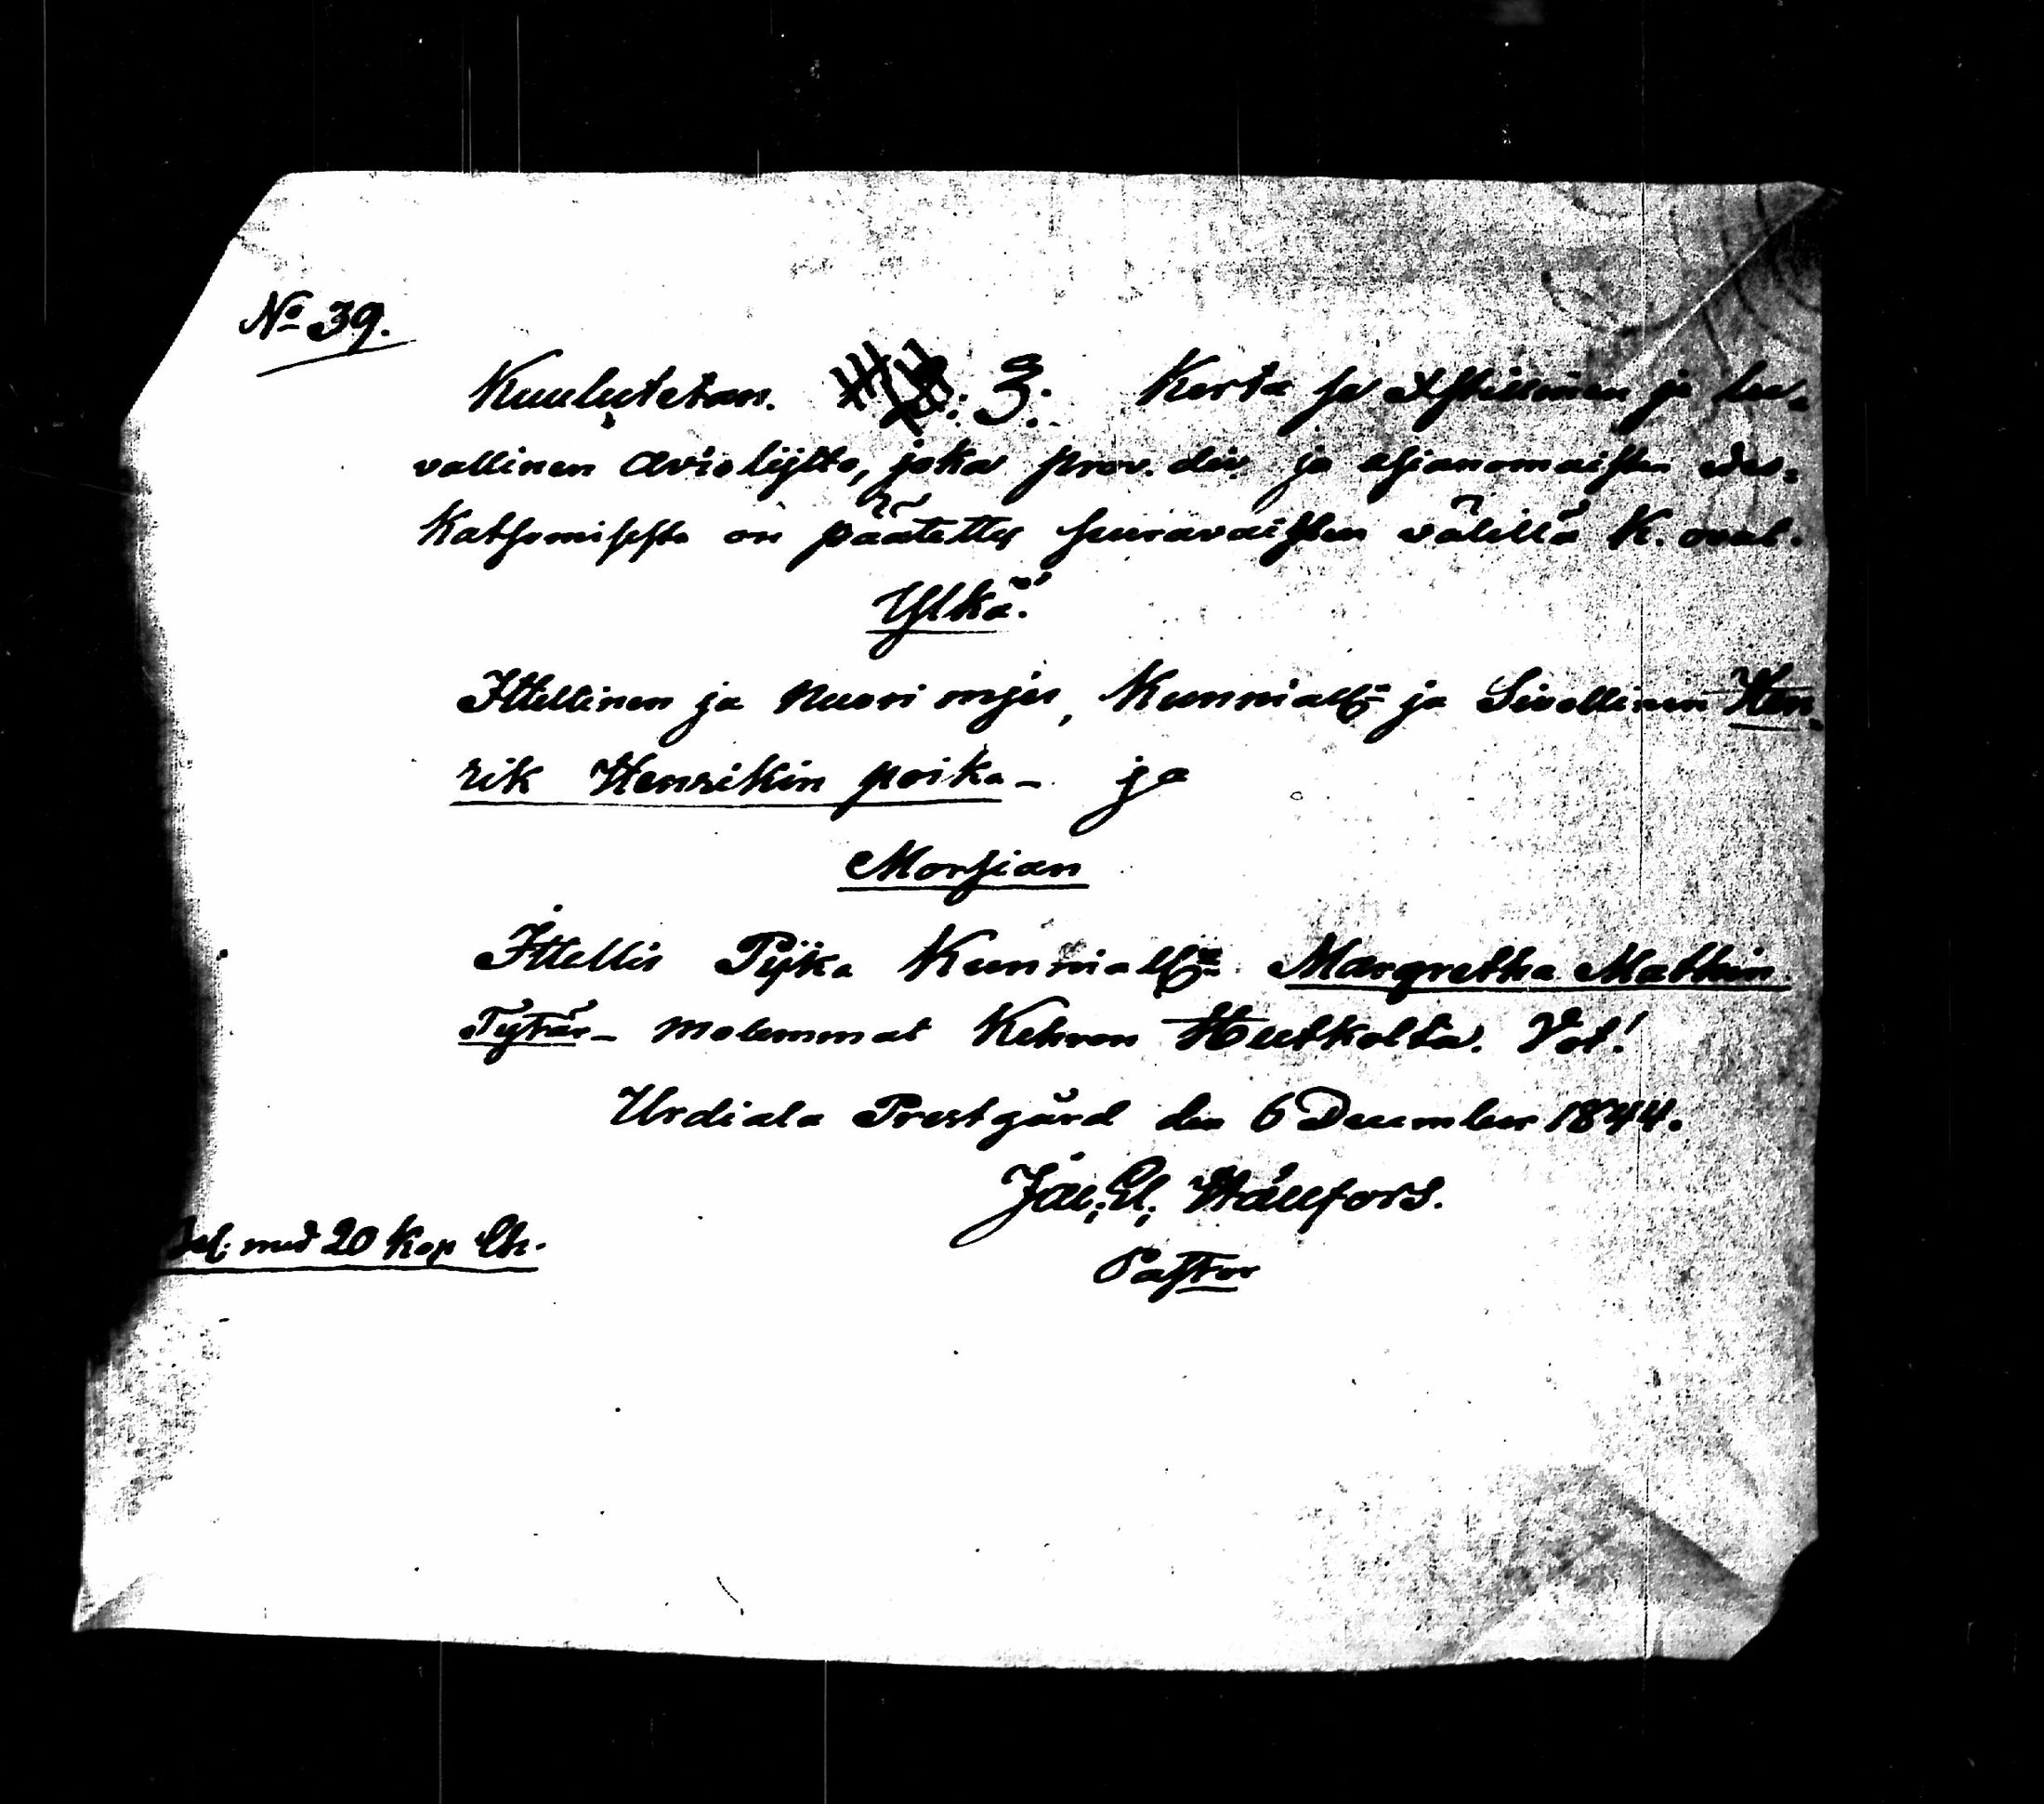 No 39.
Kuulutetan. 3. Kerta se Xstillinen ja lu-
vallinen Aviolijtto, joka prov. div. ja asianomaisten
Katsomisesta on päätetty seuravaisten välillä K. ocal.
Ylkä.
Ittellinen ja Nuori mjes, Kunniall. ja Sivollinen Hen-
rik Henrikin poika - ja
Morsian
Ittellis Pijka Kunniall. Margretha Mathin
Tytär - molemmat Kehron Hutkolta. Vot!
Urdiala Prestgård den 6 December 1844.
Jac. Gl. Hällfors.
Pastor
med 20 kop